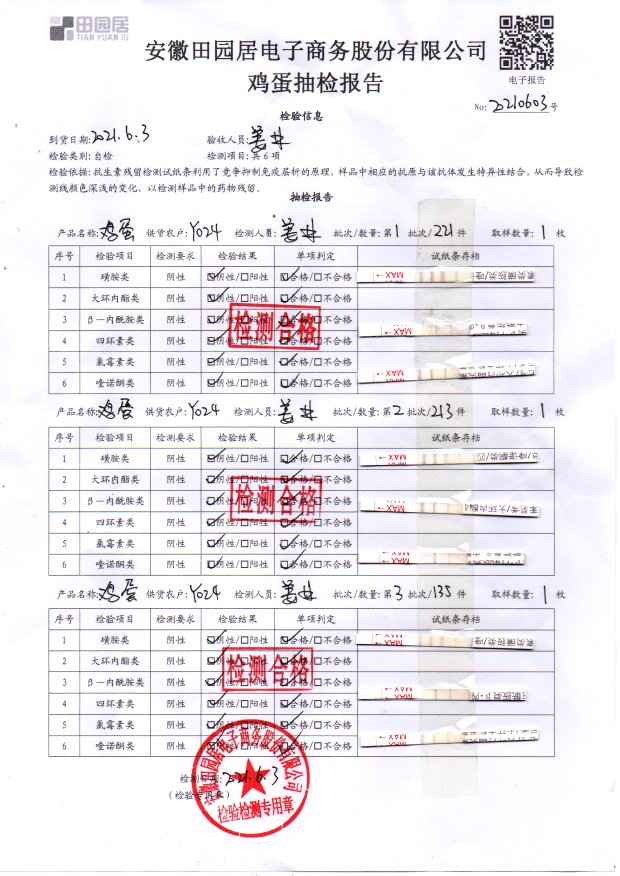 田园居
TIAN YUAN JU
安徽田园居电子商务股份有限公司
鸡蛋抽检报告
电子报告
No: 20210603号
检验信息
到货日期: 2021.6.3 验收人员:
检验类别: 自检 检测项目: 共 6 项
检验依据: 抗生素残留检测试纸条利用了竞争抑制免疫层析的原理, 样品中相应的抗原与该抗体发生特异性结合, 从而导致检
测线颜色深浅的变化, 以检测样品中的药物残留。
抽检报告
产品名称: 鸡蛋 供货农户: Y024 检测人员: 批次/数量: 第1批次/221件 取样数量: 1 枚
序号 检验项目 检测要求 检验结果 单项判定 试纸条存档
1 磺胺类 阴性 ☑阴性/□阳性 ☑合格/□不合格 MAX
2 大环内酯类 阴性 ☑阴性/□阳性 ☑合格/□不合格
3 β—内酰胺类 阴性 ☑阴性/□阳性 ☑合格/□不合格
4 四环素类 阴性 ☑阴性/□阳性 ☑合格/□不合格 MAX
5 氯霉素类 阴性 ☑阴性/□阳性 ☑合格/□不合格
6 喹诺酮类 阴性 ☑阴性/□阳性 ☑合格/□不合格 MAX
检测合格
产品名称: 鸡蛋 供货农户: Y024 检测人员: 批次/数量: 第2批次/213件 取样数量: 1 枚
序号 检验项目 检测要求 检验结果 单项判定 试纸条存档
1 磺胺类 阴性 ☑阴性/□阳性 ☑合格/□不合格 MAX
2 大环内酯类 阴性 ☑阴性/□阳性 ☑合格/□不合格
3 β—内酰胺类 阴性 ☑阴性/□阳性 ☑合格/□不合格 MAX
4 四环素类 阴性 ☑阴性/□阳性 ☑合格/□不合格
5 氯霉素类 阴性 ☑阴性/□阳性 ☑合格/□不合格
6 喹诺酮类 阴性 ☑阴性/□阳性 ☑合格/□不合格 MAX
检测合格
产品名称: 鸡蛋 供货农户: Y024 检测人员: 批次/数量: 第3批次/135件 取样数量: 1 枚
序号 检验项目 检测要求 检验结果 单项判定 试纸条存档
1 磺胺类 阴性 ☑阴性/□阳性 ☑合格/□不合格 MAX
2 大环内酯类 阴性 ☑阴性/□阳性 ☑合格/□不合格
3 β—内酰胺类 阴性 ☑阴性/□阳性 ☑合格/□不合格 MAX
4 四环素类 阴性 ☑阴性/□阳性 ☑合格/□不合格
5 氯霉素类 阴性 ☑阴性/□阳性 ☑合格/□不合格
6 喹诺酮类 阴性 ☑阴性/□阳性 ☑合格/□不合格 MAX
检测合格
检测日期: 2021.6.3
(检验专用章)
安徽田园居电子商务股份有限公司
检验检测专用章